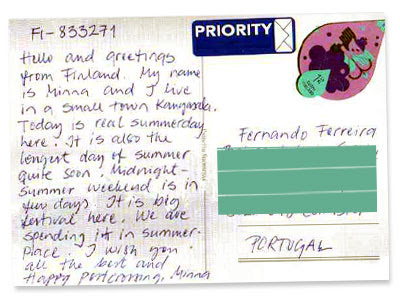 FI-833271
PRIORITY
Hello and greetings
from Finland. My name
is Minna and I live
in a small town Kangasala.
Today is real summerday
here. It is also the
longest day of summer
quite soon. Midnight-
summer weekend is in
few days. It is big
festival here. We are
spending it in summer-
place. I wish you
all the best and
Happy postcrossing, Minna
Fernando Ferreira
PORTUGAL